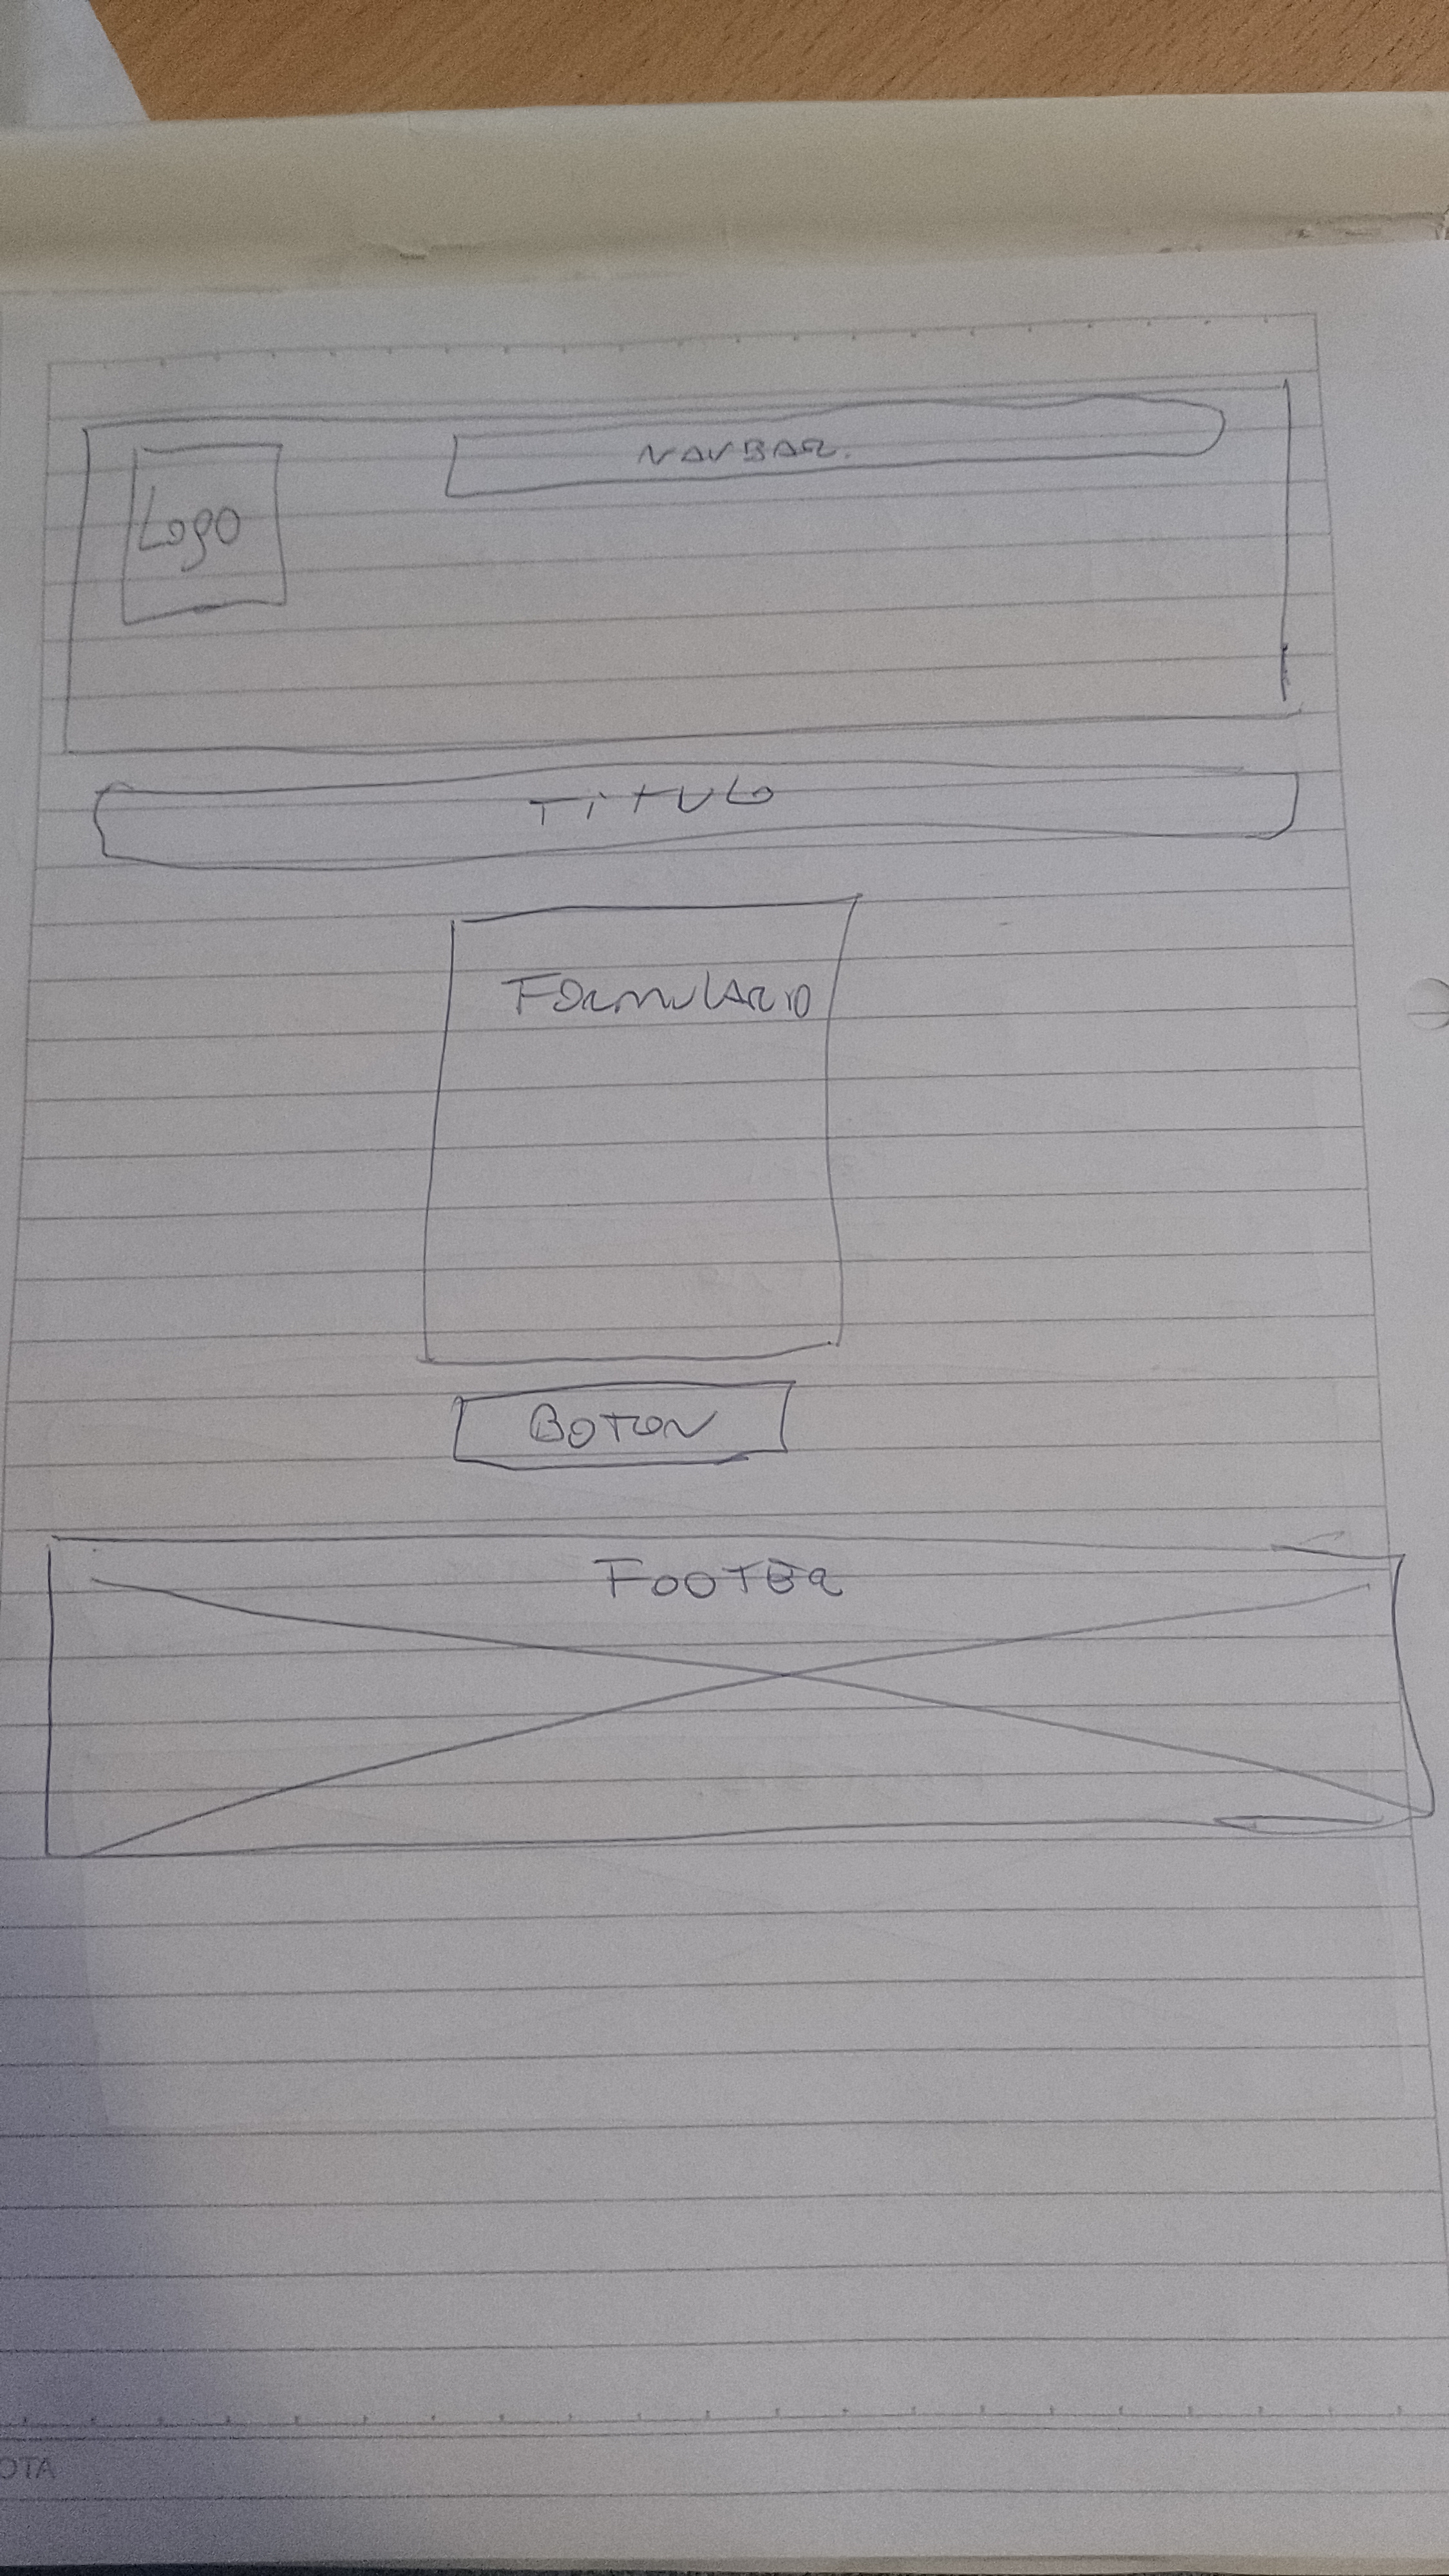 NAVBAR.
Logo
TiTULO
FORMULARIO
BOTON
FOOTER
OTA